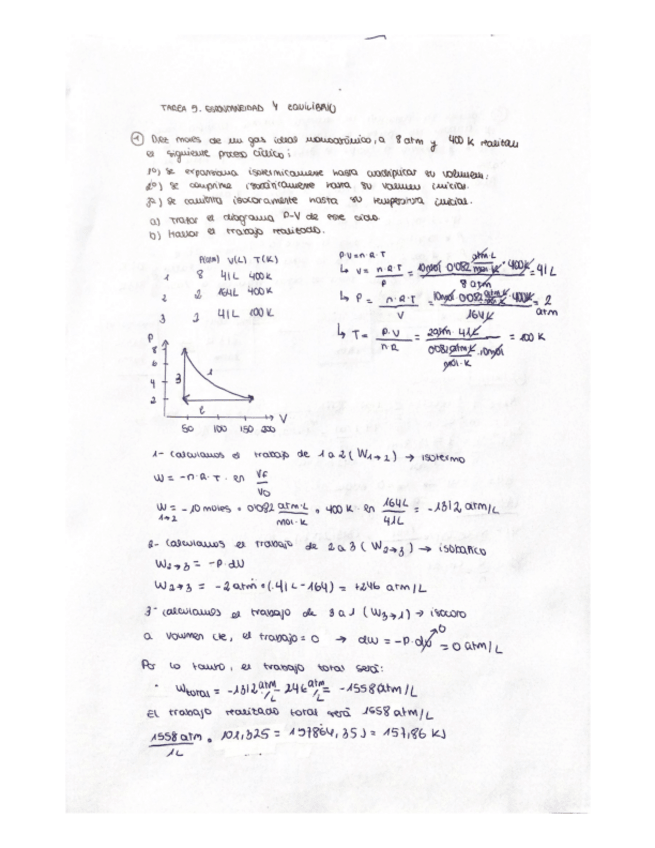 TAREA 5. ESPONTANEIDAD Y EQUILIBRIO
① Diez moles de un gas ideal monoatómico, a 8 atm y 400 K realizan
el siguiente proceso cíclico:
1º) se expansiona isotérmicamente hasta cuadriplicar su volumen.
2º) se comprime isobáricamente hasta su volumen inicial.
3º) se cambia isocoramente hasta su temperatura inicial.
a) Trazar el diagrama P-V de este ciclo.
b) Hallar el trabajo realizado.
P(atm) V(L) T(K)
1 8 41L 400K
2 2 164L 400K
3 2 41L 100K
P·V=n·R·T
↳ V = n·R·T / P = 10mol 0'082 atm·L / mol·K · 400K / 8 atm = 41L
↳ P = n·R·T / V = 10mol 0'082 atm·L / mol·K · 400K / 164L = 2 atm
↳ T = P·V / n·R = 2atm · 41L / 0'082 atm·L / mol·K · 10mol = 100 K
P
8
6
4
2
3
1
2
50 100 150 200
V
1- Calculamos el trabajo de 1 a 2 (W1→2) → isotermo
W = -n·R·T· ln VF / V0
W1→2 = -10 moles · 0'082 atm·L / mol·K · 400 K ln 164L / 41L = -1312 atm/L
2- Calculamos el trabajo de 2 a 3 (W2→3) → isobárico
W2→3 = -P·dV
W2→3 = -2 atm · (41L - 164) = +246 atm/L
3- Calculamos el trabajo de 3 a 1 (W3→1) → isocoro
a volumen cte, el trabajo = 0 → dW = -P·dV 0 = 0 atm/L
Por lo tanto, el trabajo total será:
· Wtotal = -1312 atm/L - 246 atm/L = -1558 atm/L
El trabajo realizado total será 1558 atm/L
1558 atm / 1L · 101,325 = 157864,35 J = 157,86 KJ